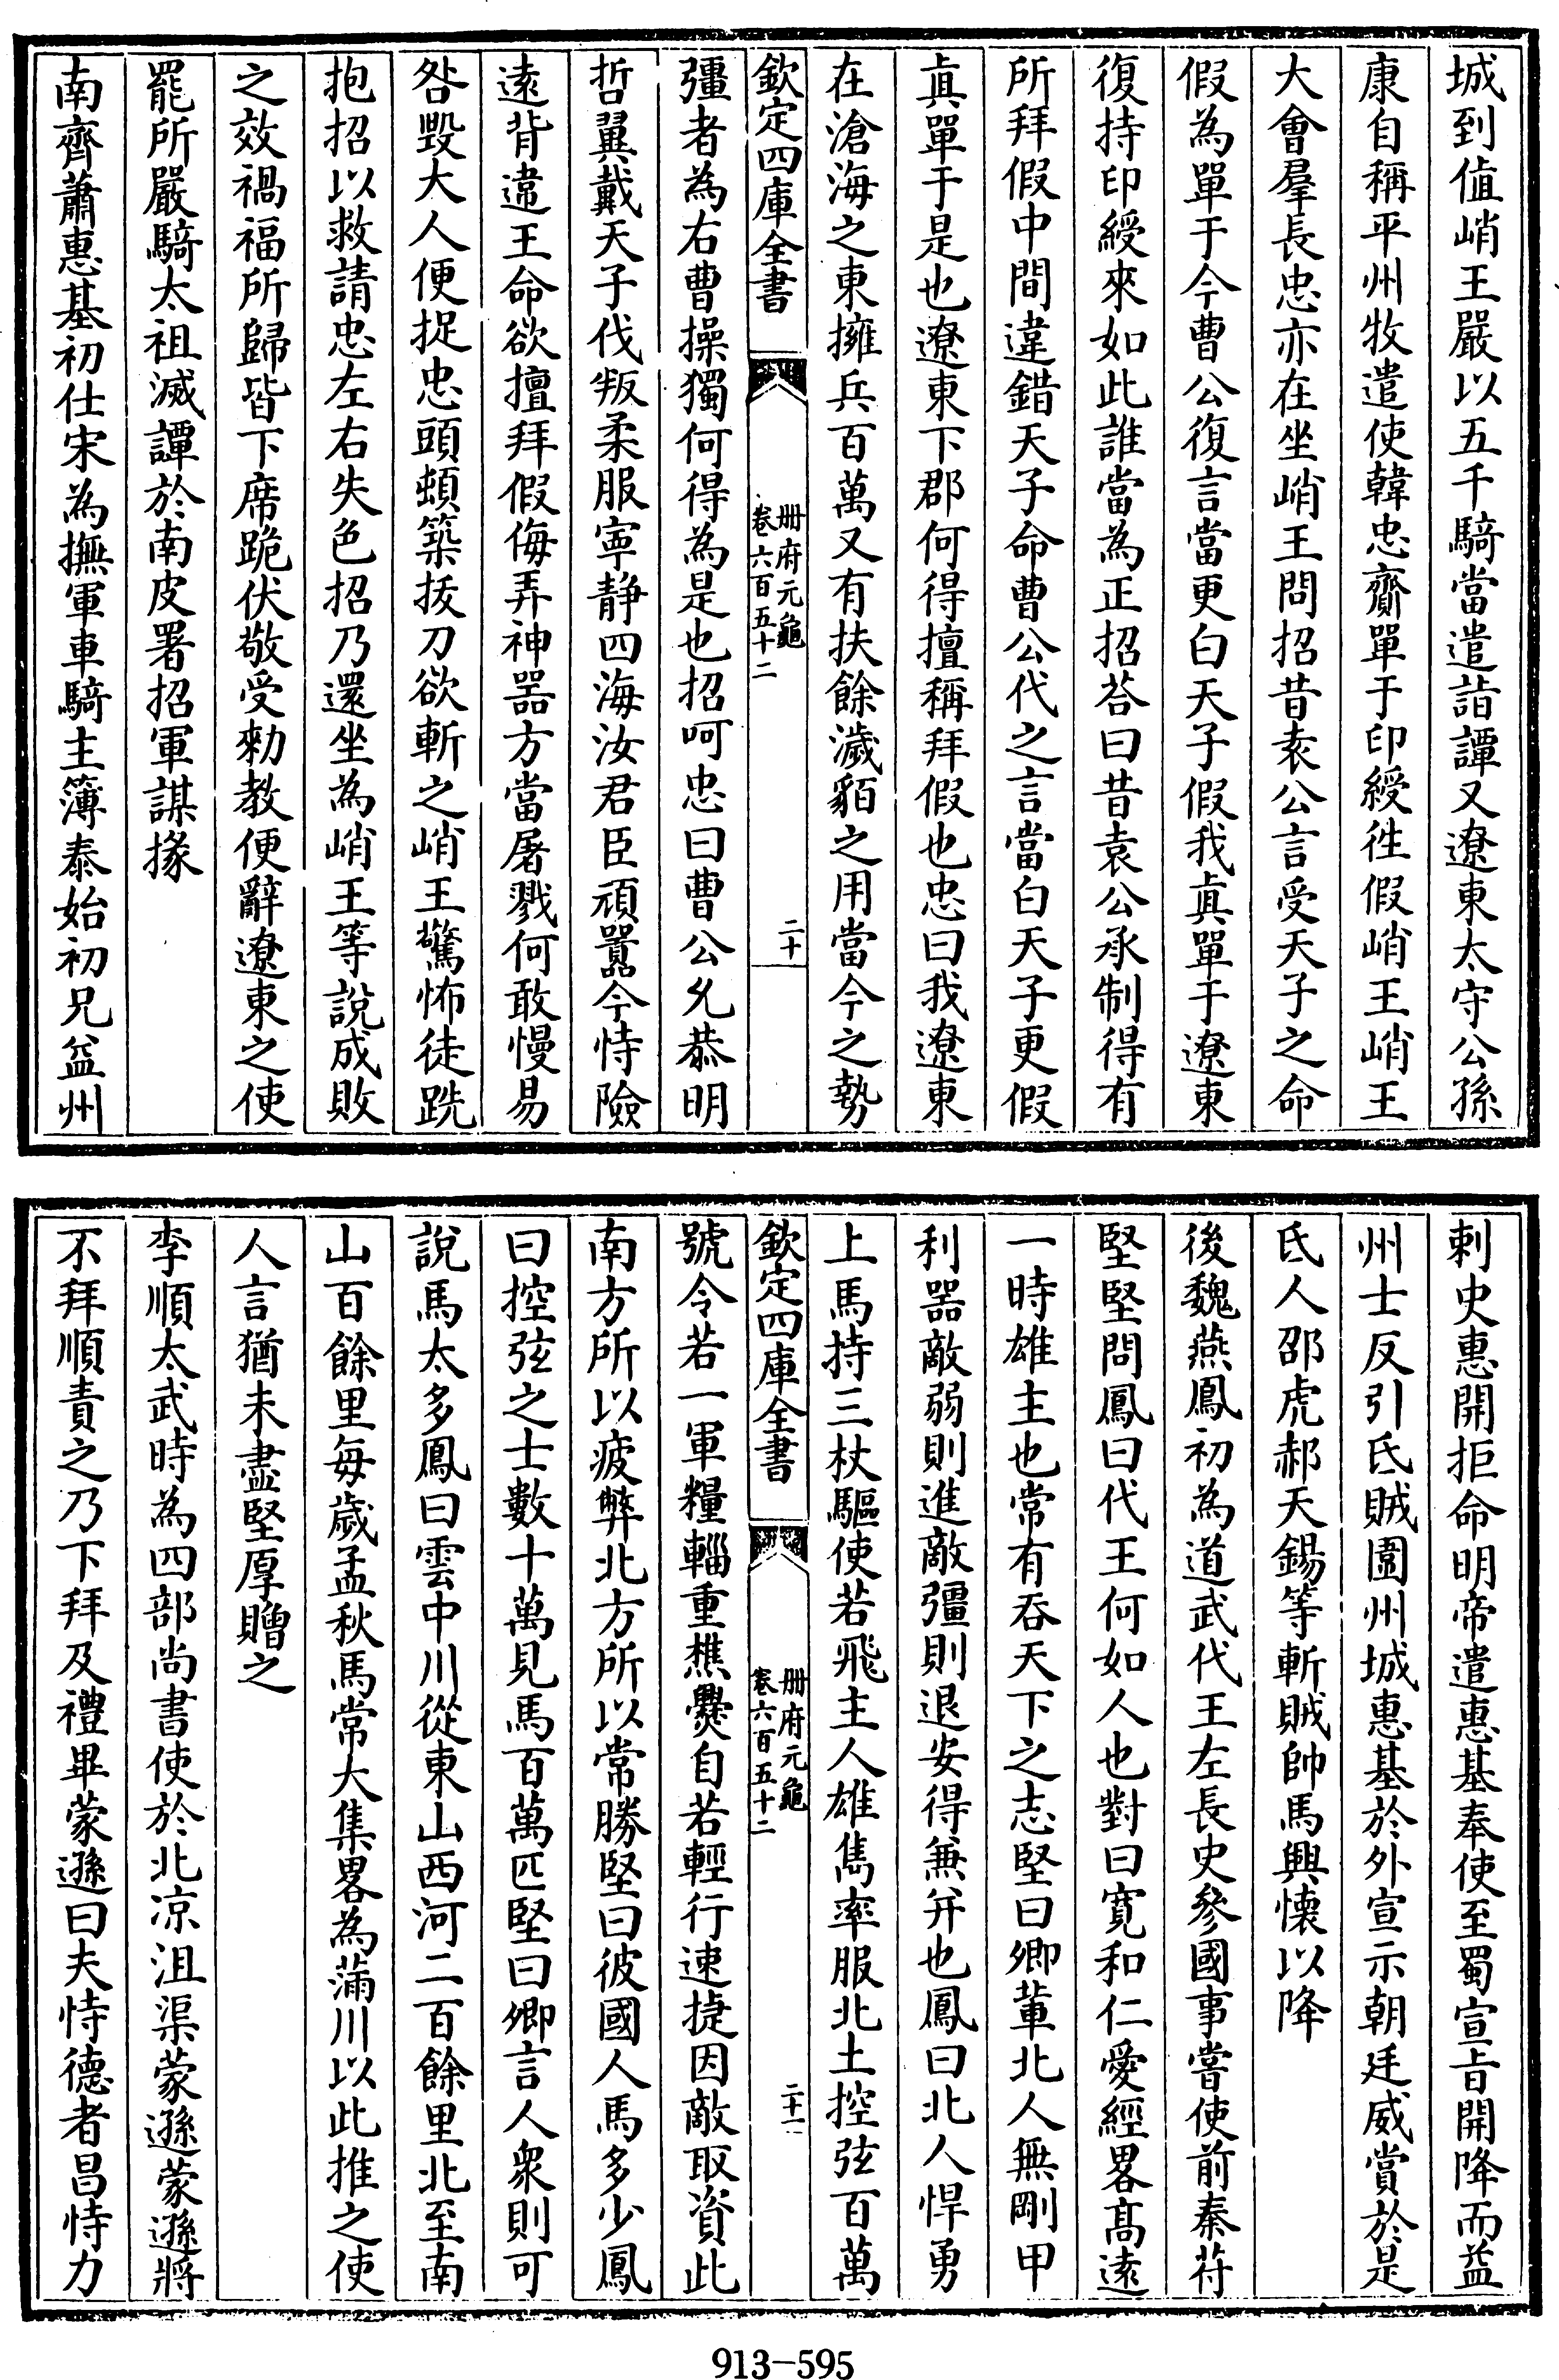 城到值峭王嚴以五千騎當遣詣譚又遼東太守公孫
康自稱平州牧遣使韓忠齎單于印綬徃假峭王峭王
大會羣長忠亦在坐峭王問招昔袁公言受天子之命
假為單于今曹公復言當更白天子假我真單于遼東
復持印綬來如此誰當為正招荅曰昔袁公承制得有
所拜假中間違錯天子命曹公代之言當白天子更假
真單于是也遼東下郡何得擅稱拜假也忠曰我遼東
在滄海之東擁兵百萬又有扶餘濊貊之用當今之勢
欽定四庫全書
冊府元龜
卷六百五十二
二十
彊者為右曹操獨何得為是也招呵忠曰曹公允恭明
哲翼戴天子伐叛柔服寧静四海汝君臣頑嚚今恃險
逺背違王命欲擅拜假侮弄神器方當屠戮何敢慢易
咎毀大人便捉忠頭頓築拔刀欲斬之峭王驚怖徒跣
抱招以救請忠左右失色招乃還坐為峭王等說成敗
之效禍福所歸皆下席跪伏敬受勑教便辭遼東之使
罷所嚴騎太祖滅譚於南皮署招軍謀掾
南齊蕭惠基初仕宋為撫軍車騎主簿泰始初兄益州
刺史惠開拒命明帝遣惠基奉使至蜀宣旨開降而益
州士反引氐賊圍州城惠基於外宣示朝廷威賞於是
氐人邵虎郝天錫等斬賊帥馬興懐以降
後魏燕鳳初為道武代王左長史參國事嘗使前秦苻
堅堅問鳳曰代王何如人也對曰寛和仁愛經畧髙逺
一時雄主也常有吞天下之志堅曰卿軰北人無剛甲
利器敵弱則進敵彊則退安得兼并也鳳曰北人悍勇
上馬持三杖驅使若飛主人雄雋率服北土控弦百萬
欽定四庫全書
冊府元龜
卷六百五十二
二十一
號令若一軍糧輜重樵爨自若輕行速捷因敵取資此
南方所以疲弊北方所以常勝堅曰彼國人馬多少鳳
曰控弦之士數十萬見馬百萬匹堅曰卿言人衆則可
說馬太多鳳曰雲中川從東山西河二百餘里北至南
山百餘里每歲孟秋馬常大集畧為滿川以此推之使
人言猶未盡堅厚贈之
李順太武時為四部尚書使於北凉沮渠蒙遜蒙遜將
不拜順責之乃下拜及禮畢蒙遜曰夫恃德者昌恃力
913-595